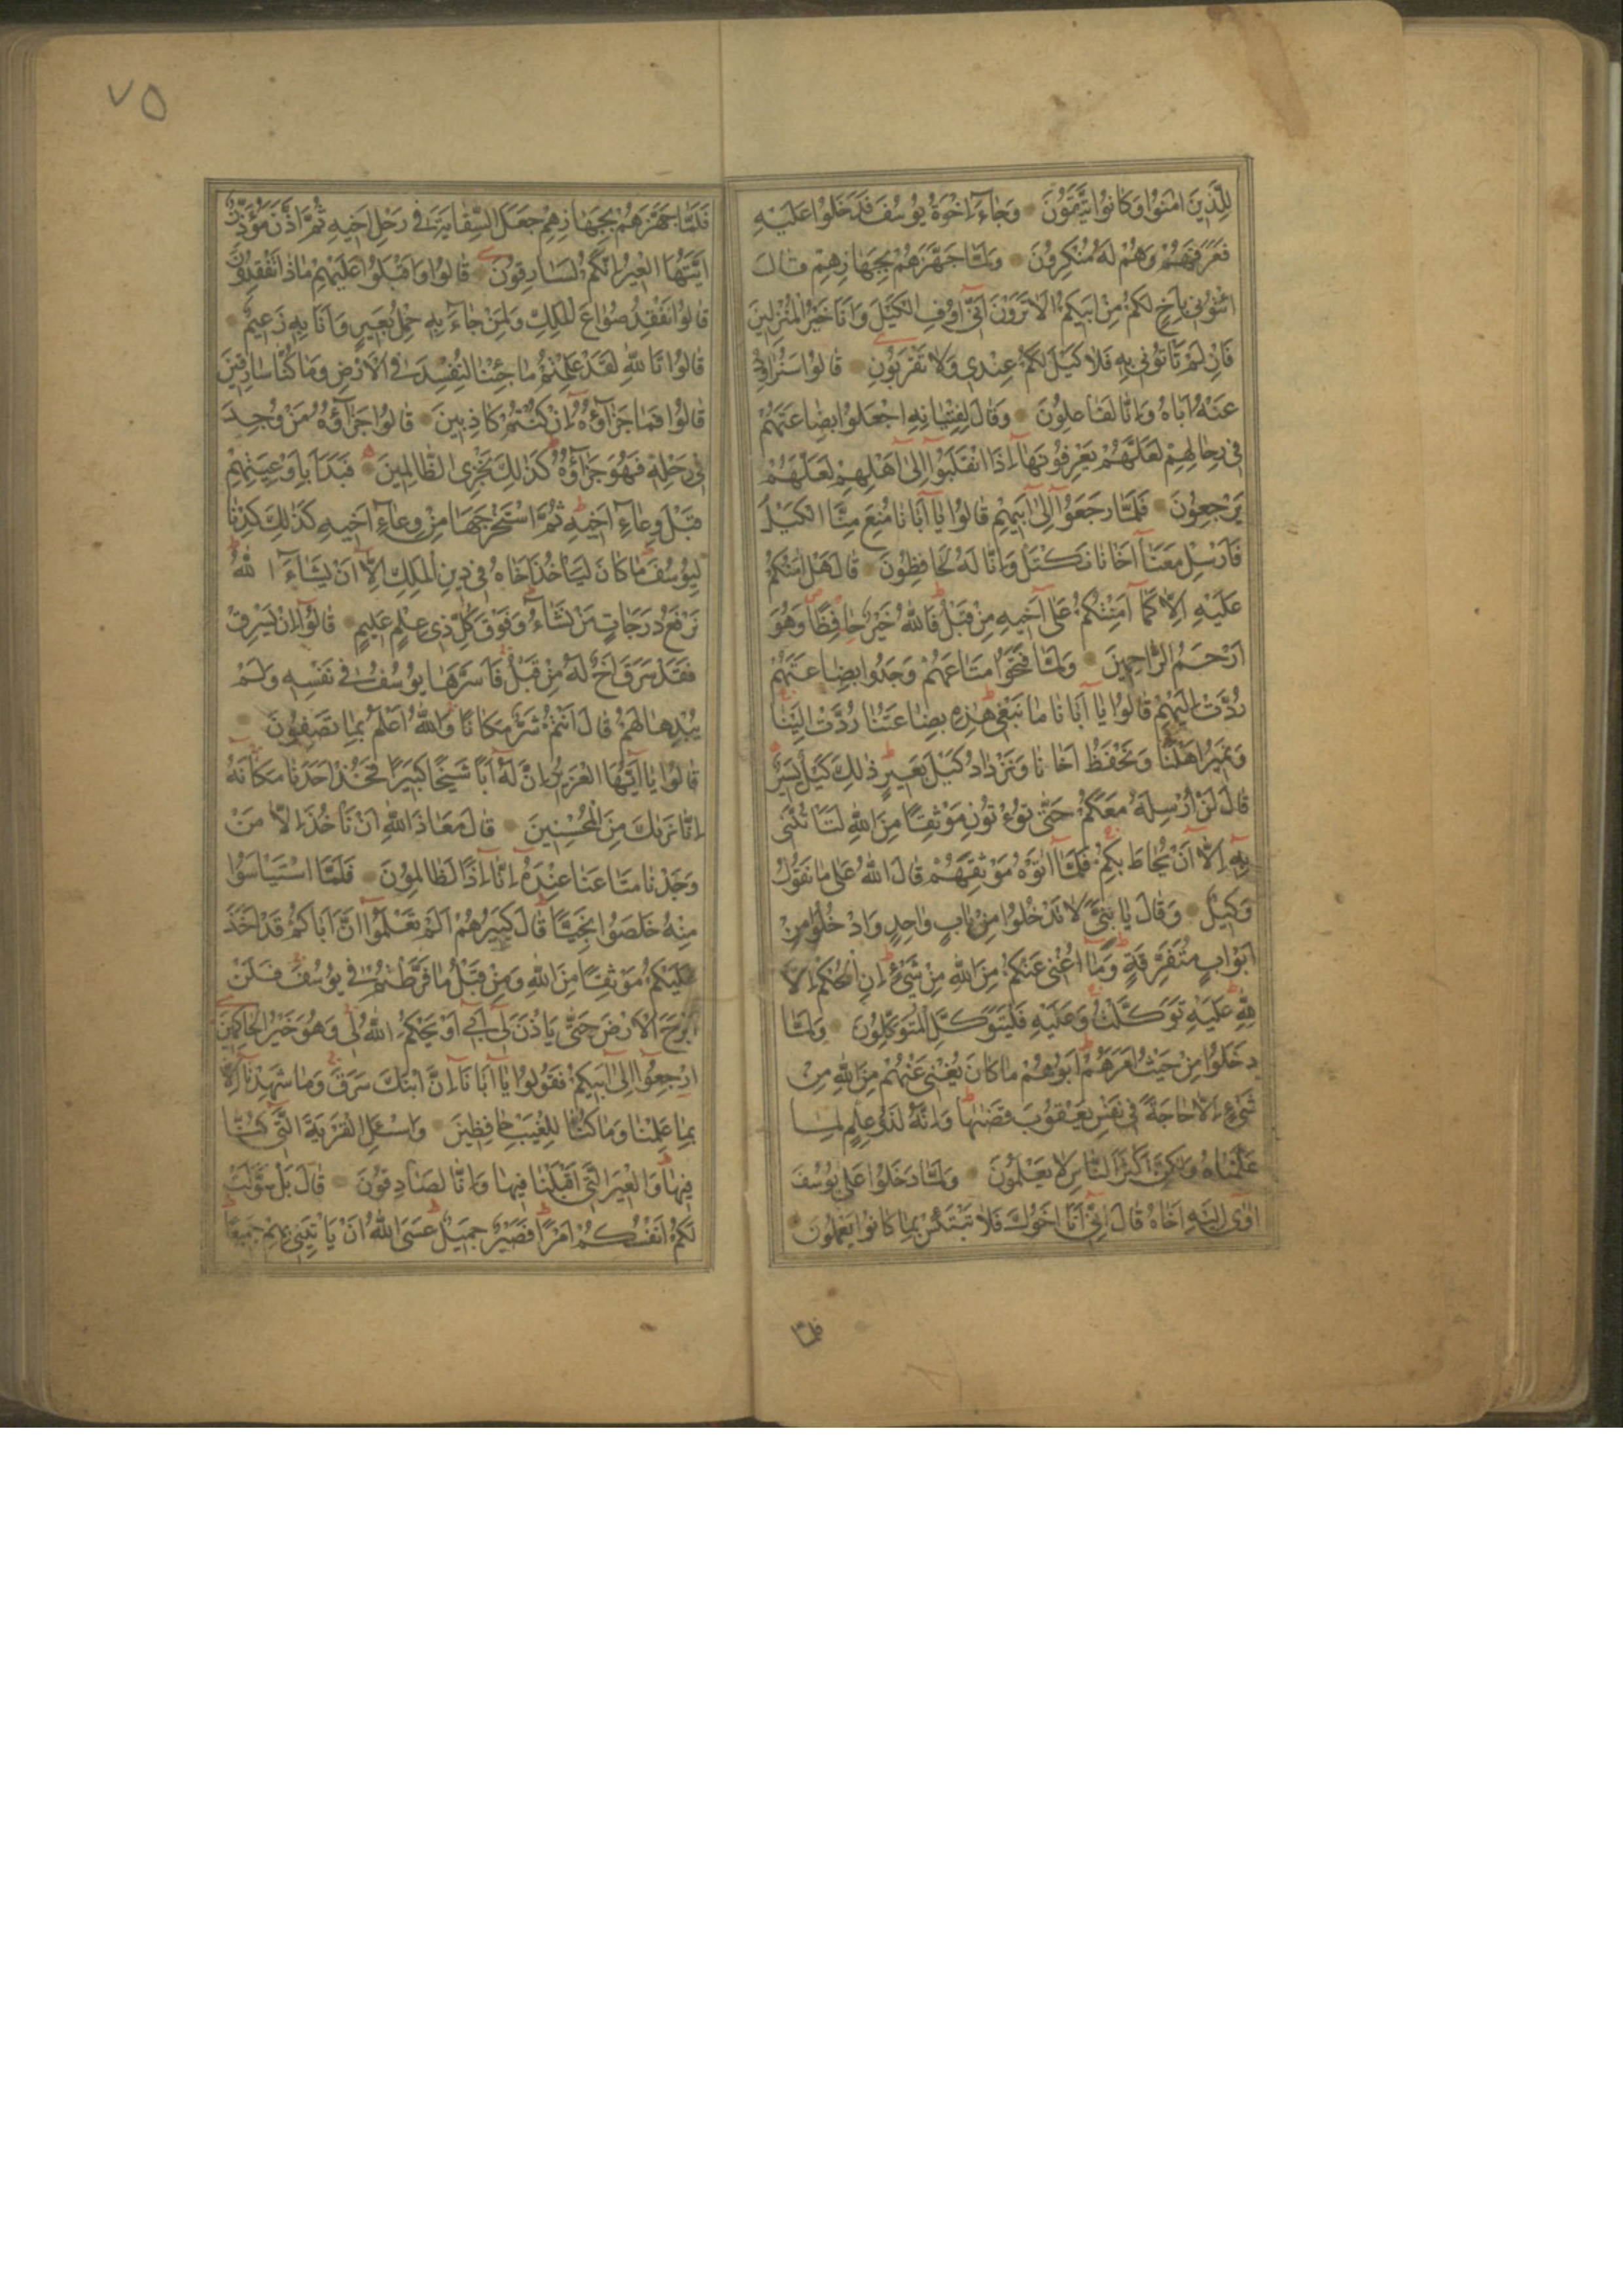 لِلَّذِينَ اٰمَنُوا وَكَانُوا يَتَّقُونَ وَجَاءَ اِخْوَةُ يُوسُفَ فَدَخَلُوا عَلَيْهِ
فَعَرَفَهُمْ وَهُمْ لَهُ مُنْكِرُونَ وَلَمَّا جَهَّزَهُمْ بِجَهَازِهِمْ قَالَ
ائْتُونِي بِاَخٍ لَكُمْ مِنْ اَبِيكُمْ اَلَا تَرَوْنَ اَنِّي اُوفِ الْكَيْلَ وَاَنَا خَيْرُ الْمُنْزِلِينَ
فَاِنْ لَمْ تَأْتُونِي بِهِ فَلَا كَيْلَ لَكُمْ عِنْدِي وَلَا تَقْرَبُونِ قَالُوا سَنُرَاوِدُ
عَنْهُ اَبَاهُ وَاِنَّا لَفَاعِلُونَ وَقَالَ لِفِتْيَانِهِ اجْعَلُوا بِضَاعَتَهُمْ
فِي رِحَالِهِمْ لَعَلَّهُمْ يَعْرِفُونَهَا اِذَا انْقَلَبُوا اِلٰى اَهْلِهِمْ لَعَلَّهُمْ
يَرْجِعُونَ فَلَمَّا رَجَعُوا اِلٰى اَبِيهِمْ قَالُوا يَا اَبَانَا مُنِعَ مِنَّا الْكَيْلُ
فَاَرْسِلْ مَعَنَا اَخَانَا نَكْتَلْ وَاِنَّا لَهُ لَحَافِظُونَ قَالَ هَلْ اٰمَنُكُمْ
عَلَيْهِ اِلَّا كَمَا اَمِنْتُكُمْ عَلٰى اَخِيهِ مِنْ قَبْلُ فَاللهُ خَيْرٌ حَافِظًا وَهُوَ
اَرْحَمُ الرَّاحِمِينَ وَلَمَّا فَتَحُوا مَتَاعَهُمْ وَجَدُوا بِضَاعَتَهُمْ
رُدَّتْ اِلَيْهِمْ قَالُوا يَا اَبَانَا مَا نَبْغِي هٰذِهِ بِضَاعَتُنَا رُدَّتْ اِلَيْنَا
وَنَمِيرُ اَهْلَنَا وَنَحْفَظُ اَخَانَا وَنَزْدَادُ كَيْلَ بَعِيرٍ ذٰلِكَ كَيْلٌ يَسِيرٌ
قَالَ لَنْ اُرْسِلَهُ مَعَكُمْ حَتّٰى تُؤْتُونِ مَوْثِقًا مِنَ اللهِ لَتَأْتُنَّنِي
بِهِ اِلَّا اَنْ يُحَاطَ بِكُمْ فَلَمَّا اٰتَوْهُ مَوْثِقَهُمْ قَالَ اللهُ عَلٰى مَا نَقُولُ
وَكِيلٌ وَقَالَ يَا بَنِيَّ لَا تَدْخُلُوا مِنْ بَابٍ وَاحِدٍ وَادْخُلُوا مِنْ
اَبْوَابٍ مُتَفَرِّقَةٍ وَمَا اُغْنِي عَنْكُمْ مِنَ اللهِ مِنْ شَيْءٍ اِنِ الْحُكْمُ اِلَّا
لِلّٰهِ عَلَيْهِ تَوَكَّلْتُ وَعَلَيْهِ فَلْيَتَوَكَّلِ الْمُتَوَكِّلُونَ وَلَمَّا
دَخَلُوا مِنْ حَيْثُ اَمَرَهُمْ اَبُوهُمْ مَا كَانَ يُغْنِي عَنْهُمْ مِنَ اللهِ مِنْ
شَيْءٍ اِلَّا حَاجَةً فِي نَفْسِ يَعْقُوبَ قَضٰهَا وَاِنَّهُ لَذُو عِلْمٍ لِمَا
عَلَّمْنَاهُ وَلٰكِنَّ اَكْثَرَ النَّاسِ لَا يَعْلَمُونَ وَلَمَّا دَخَلُوا عَلٰى يُوسُفَ
اٰوٰى اِلَيْهِ اَخَاهُ قَالَ اِنِّي اَنَا اَخُوكَ فَلَا تَبْتَئِسْ بِمَا كَانُوا يَعْمَلُونَ
فلما
٧٥
فَلَمَّا جَهَّزَهُمْ بِجَهَازِهِمْ جَعَلَ السِّقَايَةَ فِي رَحْلِ اَخِيهِ ثُمَّ اَذَّنَ مُؤَذِّنٌ
اَيَّتُهَا الْعِيرُ اِنَّكُمْ لَسَارِقُونَ قَالُوا وَاَقْبَلُوا عَلَيْهِمْ مَاذَا تَفْقِدُونَ
قَالُوا نَفْقِدُ صُوَاعَ الْمَلِكِ وَلِمَنْ جَاءَ بِهِ حِمْلُ بَعِيرٍ وَاَنَا بِهِ زَعِيمٌ
قَالُوا تَاللهِ لَقَدْ عَلِمْتُمْ مَا جِئْنَا لِنُفْسِدَ فِي الْاَرْضِ وَمَا كُنَّا سَارِقِينَ
قَالُوا فَمَا جَزَاؤُهُ اِنْ كُنْتُمْ كَاذِبِينَ قَالُوا جَزَاؤُهُ مَنْ وُجِدَ
فِي رَحْلِهِ فَهُوَ جَزَاؤُهُ كَذٰلِكَ نَجْزِي الظَّالِمِينَ فَبَدَاَ بِاَوْعِيَتِهِمْ
قَبْلَ وِعَاءِ اَخِيهِ ثُمَّ اسْتَخْرَجَهَا مِنْ وِعَاءِ اَخِيهِ كَذٰلِكَ كِدْنَا
لِيُوسُفَ مَا كَانَ لِيَأْخُذَ اَخَاهُ فِي دِينِ الْمَلِكِ اِلَّا اَنْ يَشَاءَ اللهُ
نَرْفَعُ دَرَجَاتٍ مَنْ نَشَاءُ وَفَوْقَ كُلِّ ذِي عِلْمٍ عَلِيمٌ قَالُوا اِنْ يَسْرِقْ
فَقَدْ سَرَقَ اَخٌ لَهُ مِنْ قَبْلُ فَاَسَرَّهَا يُوسُفُ فِي نَفْسِهِ وَلَمْ
يُبْدِهَا لَهُمْ قَالَ اَنْتُمْ شَرٌّ مَكَانًا وَاللهُ اَعْلَمُ بِمَا تَصِفُونَ
قَالُوا يَا اَيُّهَا الْعَزِيزُ اِنَّ لَهُ اَبًا شَيْخًا كَبِيرًا فَخُذْ اَحَدَنَا مَكَانَهُ
اِنَّا نَرٰىكَ مِنَ الْمُحْسِنِينَ قَالَ مَعَاذَ اللهِ اَنْ نَأْخُذَ اِلَّا مَنْ
وَجَدْنَا مَتَاعَنَا عِنْدَهُ اِنَّا اِذًا لَظَالِمُونَ فَلَمَّا اسْتَيْاَسُوا
مِنْهُ خَلَصُوا نَجِيًّا قَالَ كَبِيرُهُمْ اَلَمْ تَعْلَمُوا اَنَّ اَبَاكُمْ قَدْ اَخَذَ
عَلَيْكُمْ مَوْثِقًا مِنَ اللهِ وَمِنْ قَبْلُ مَا فَرَّطْتُمْ فِي يُوسُفَ فَلَنْ
اَبْرَحَ الْاَرْضَ حَتّٰى يَأْذَنَ لِي اَبِي اَوْ يَحْكُمَ اللهُ لِي وَهُوَ خَيْرُ الْحَاكِمِينَ
اِرْجِعُوا اِلٰى اَبِيكُمْ فَقُولُوا يَا اَبَانَا اِنَّ ابْنَكَ سَرَقَ وَمَا شَهِدْنَا اِلَّا
بِمَا عَلِمْنَا وَمَا كُنَّا لِلْغَيْبِ حَافِظِينَ وَاسْئَلِ الْقَرْيَةَ الَّتِي كُنَّا
فِيهَا وَالْعِيرَ الَّتِي اَقْبَلْنَا فِيهَا وَاِنَّا لَصَادِقُونَ قَالَ بَلْ سَوَّلَتْ
لَكُمْ اَنْفُسُكُمْ اَمْرًا فَصَبْرٌ جَمِيلٌ عَسَى اللهُ اَنْ يَأْتِيَنِي بِهِمْ جَمِيعًا